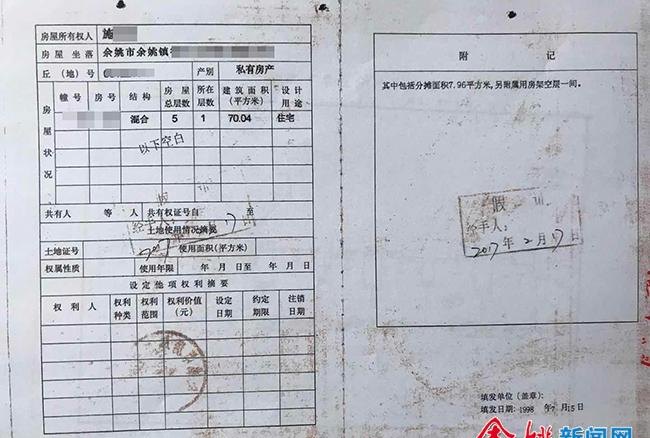 房屋所有权人 施
房屋坐落 余姚市余姚镇
丘（地）号 产别 私有房产
房屋状况
幢号 房号 结构 房屋总层数 所在层数 建筑面积（平方米） 设计用途
混合 5 1 70.04 住宅
以下空白
共有人 等 人 共有权证号自 至
土地使用情况摘要
土地证号 使用面积（平方米）
权属性质 使用年限 年 月 日至 年 月 日
设定他项权利摘要
权利人 权利种类 权利范围 权利价值（元） 设定日期 约定期限 注销日期
附记
其中包括分摊面积7.96平方米，另附属用房架空层一间。
假
经手人：
2017年2月17日
填发单位（盖章）：
填发日期：1998年7月15日
余姚新闻网